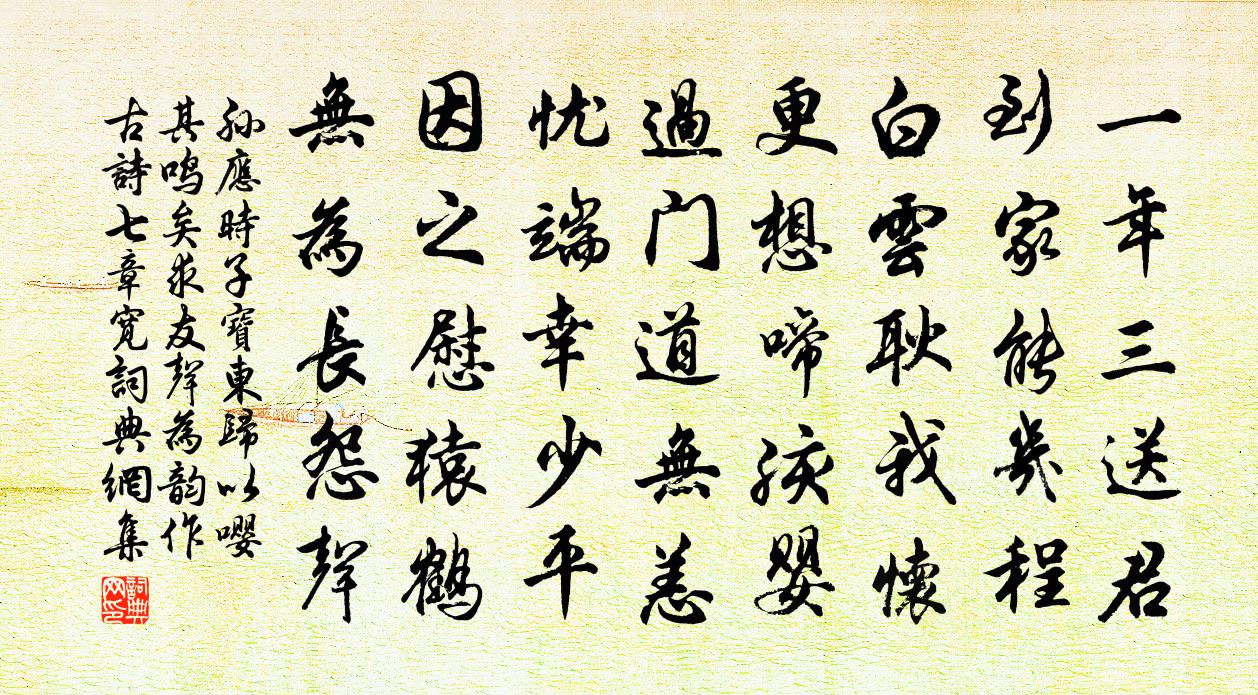 一年三送君
到家能幾程
白雲耿我懷
更想啼孩嬰
過门道無恙
忧端幸少平
因之慰猿鶴
無為長怨聲
孫應時子寶東歸以嚶
其鸣矣求友聲為韵作
古詩七章寬詞典網集
詞典网印